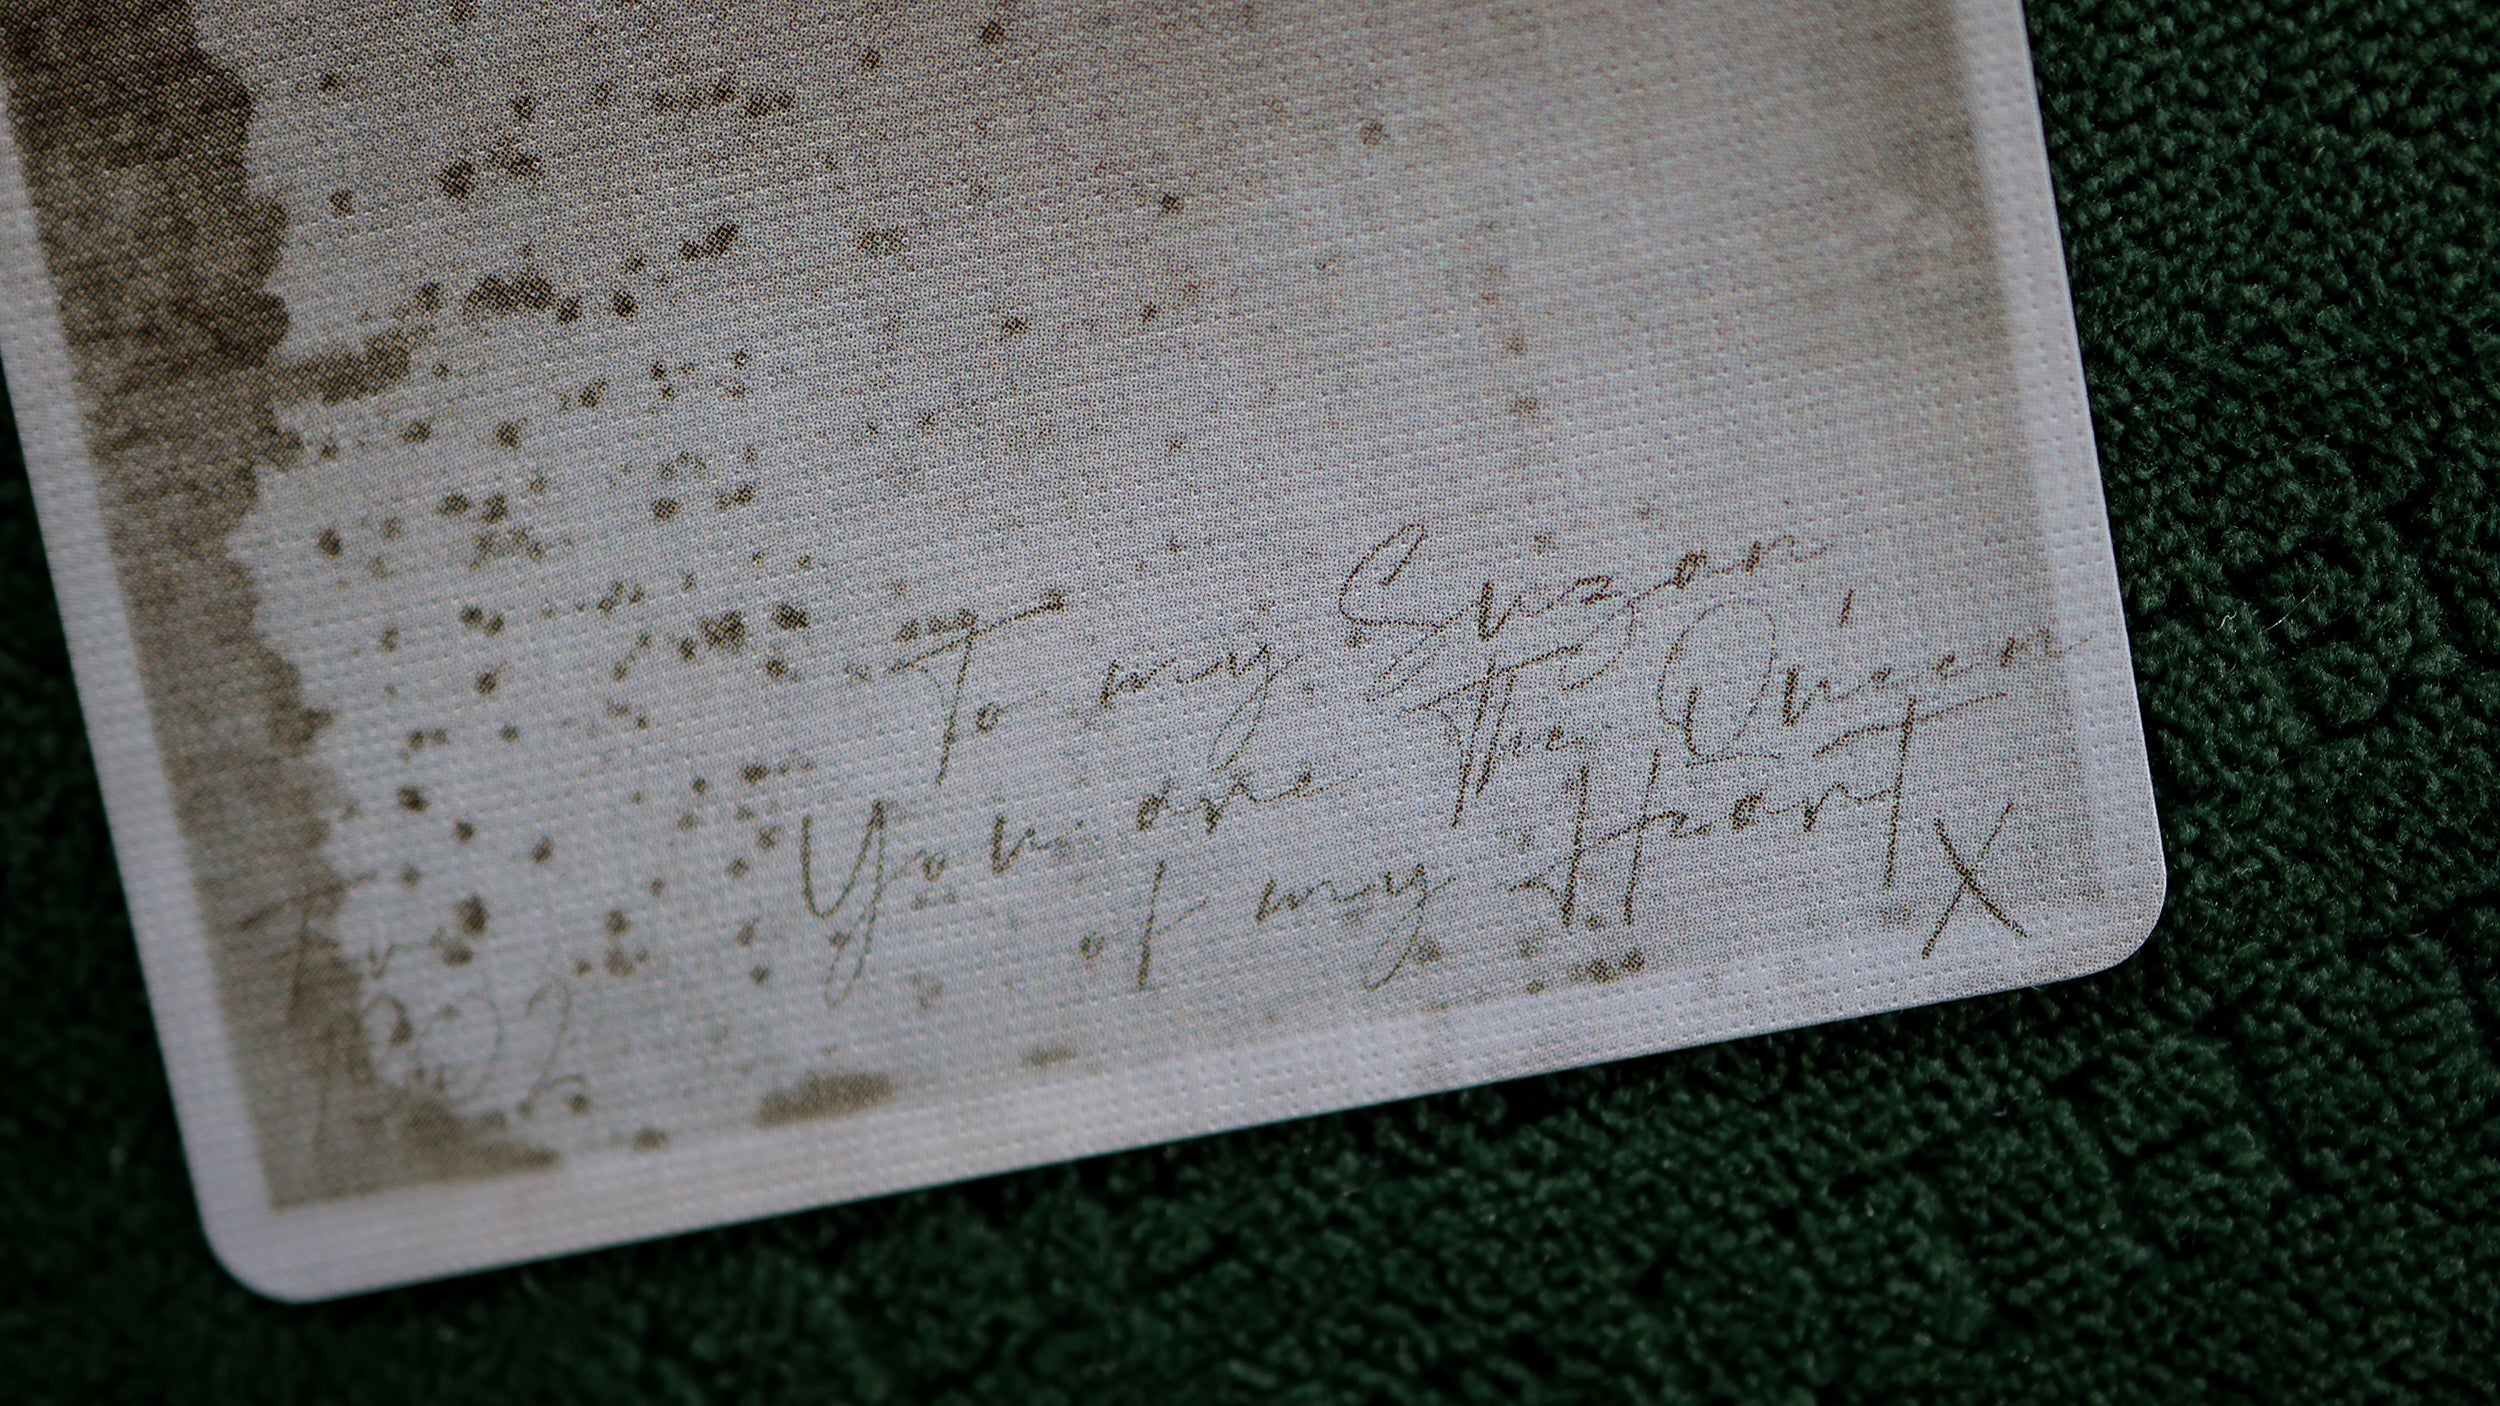 To my Suzon,
You are The Queen
of my Heart
X